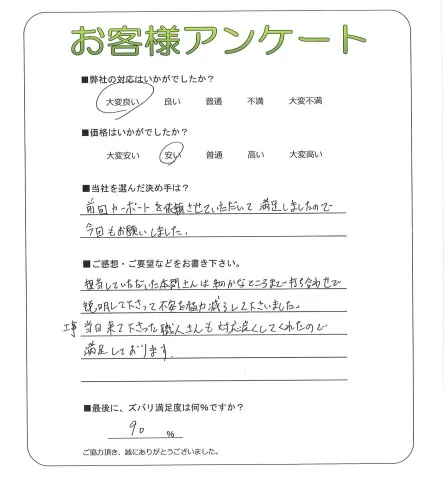 お客様アンケート
■弊社の対応はいかがでしたか？
大変良い 良い 普通 不満 大変不満
■価格はいかがでしたか？
大変安い 安い 普通 高い 大変高い
■当社を選んだ決め手は？
前回カーポートを依頼させていただいて満足しましたので
今回もお願いしました。
■ご感想・ご要望などをお書き下さい。
担当していただいた本間さんは細かなところまで打ち合わせで
説明して下さって不安を極力減らして下さいました。
工事当日来て下さった職人さんも対応良くしてくれたので
満足しております。
■最後に、ズバリ満足度は何％ですか？
90 ％
ご協力頂き、誠にありがとうございました。